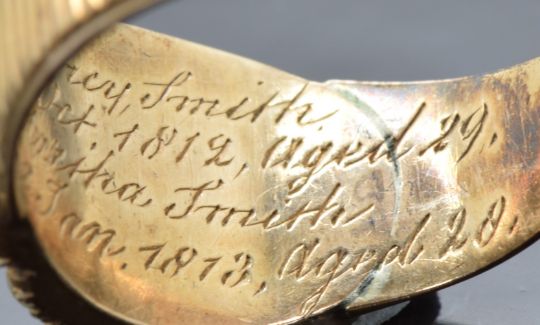 rcy, Smith
Oct. 1812, Aged 29.
tha Smith
Jan. 1813, Aged 28.